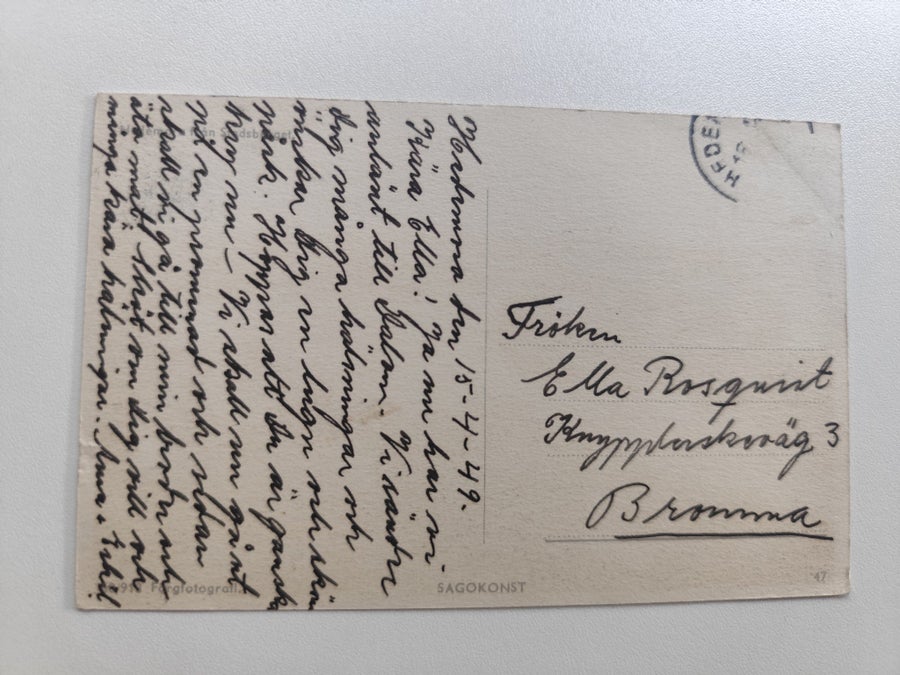 Hedemora den 15-4-49.
Kära Ella! Ja nu har vi
anlänt till Dalan. Vi sänder
Dig många hälsningar och
önskar Dig en lugn och skön
påsk. Hoppas att Du är ganska
kry nu – Vi skall nu gå ut
på en promenad och sedan
skall vi gå till min broder och
äta mat. Sköt om dig väl och
många kära hälsningar. Anna +
Fröken
Ella Rosquist
Knypplerskeväg 3
Bromma
HEDEM
från Stadsberget
Färgfotografi
SAGOKONST
47